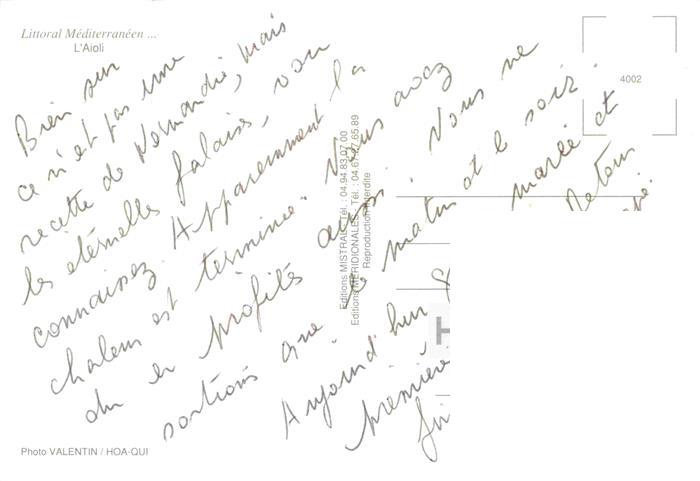 Littoral Méditerranéen ...
L'Aïoli
4002
Bien sur
ce n'est pas une
recette de Normandie, mais
les éternelles falaises, vous
connaissez. Apparemment la
chaleur est terminée. Vous avez
du en profités aussi. Vous ne
sortions que le matin et le soir.
Aujourd'hui marée et
première Retour
fin
Editions MISTRAL, Tél. : 04.94.83.07.00
Editions MÉRIDIONALES, Tél. : 04.67.27.65.89
Reproduction interdite
Photo VALENTIN / HOA-QUI